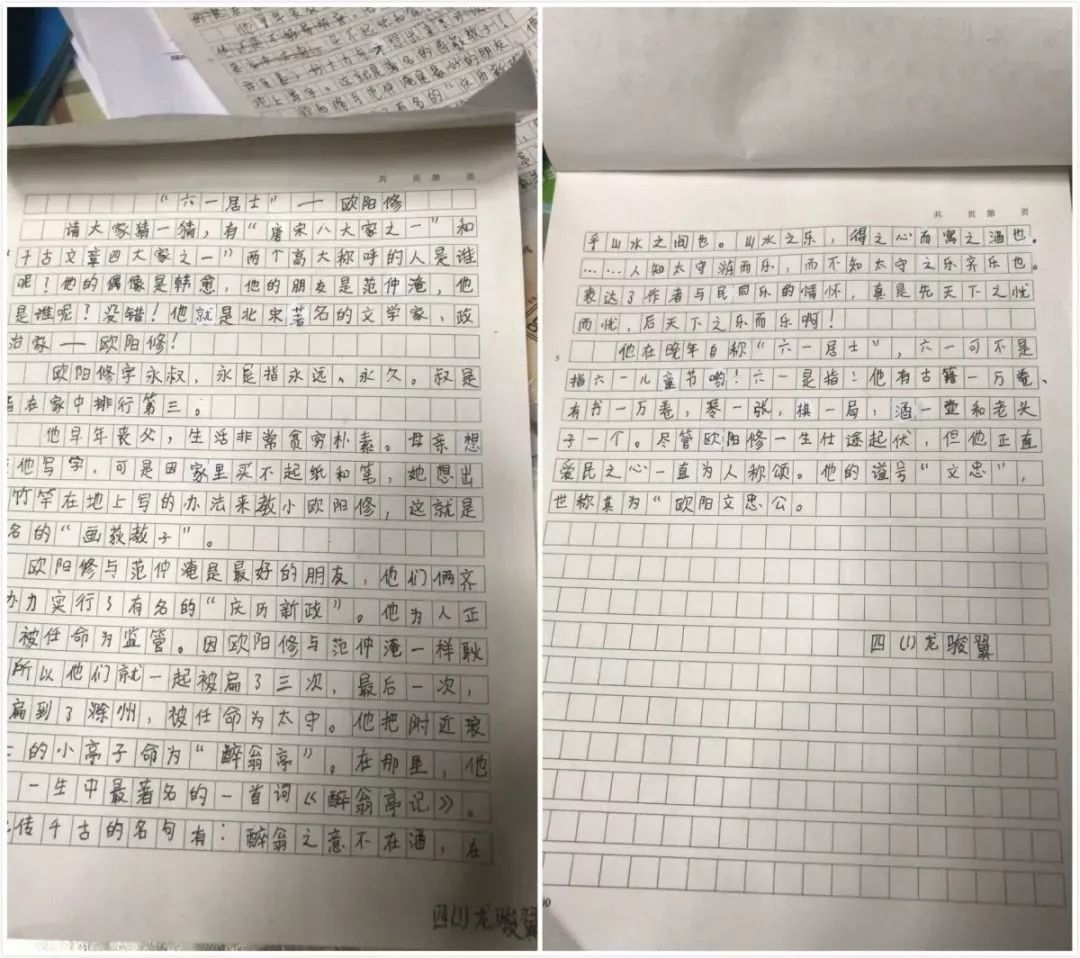 共 页第 页
“六一居士”——欧阳修
请大家猜一猜,有“唐宋八大家之一”和
“千古文章四大家之一”两个高大称呼的人是谁
呢!他的偶像是韩愈,他的朋友是范仲淹,他
是谁呢?没错!他就是北宋著名的文学家,政
治家——欧阳修!
欧阳修字永叔,永是指永远、永久。叔是
在家中排行第三。
他早年丧父,生活非常贫穷朴素。母亲想
他写字,可是因家里买不起纸和笔,她想出
竹竿在地上写的办法来教小欧阳修,这就是
名的“画荻教子”。
欧阳修与范仲淹是最好的朋友,他们俩齐
办力实行了有名的“庆历新政”。他为人正
被任命为监管。因欧阳修与范仲淹一样耿
所以他们就一起被扁了三次,最后一次,
扁到了滁州,被任命为太守。他把附近琅
的小亭子命为“醉翁亭”。在那里,他
一生中最著名的一首词《醉翁亭记》。
传千古的名句有:醉翁之意不在酒,在
四(1)龙骏翼
共 页第 页
乎山水之间也。山水之乐,得之心而寓之酒也.
……人知太守游而乐,而不知太守之乐齐乐也。
表达了作者与民同乐的情怀,真是先天下之忧
而忧,后天下之乐而乐啊!
他在晚年自称“六一居士”,六一可不是
指六一儿童节哟!六一是指:他有古籍一万卷、
有书一万卷,琴一张,棋一局,酒一壶和老头
子一个。尽管欧阳修一生仕途起伏,但他正直
爱民之心一直为人称颂。他的谥号“文忠”,
世称其为“欧阳文忠公。
四(1)龙骏翼